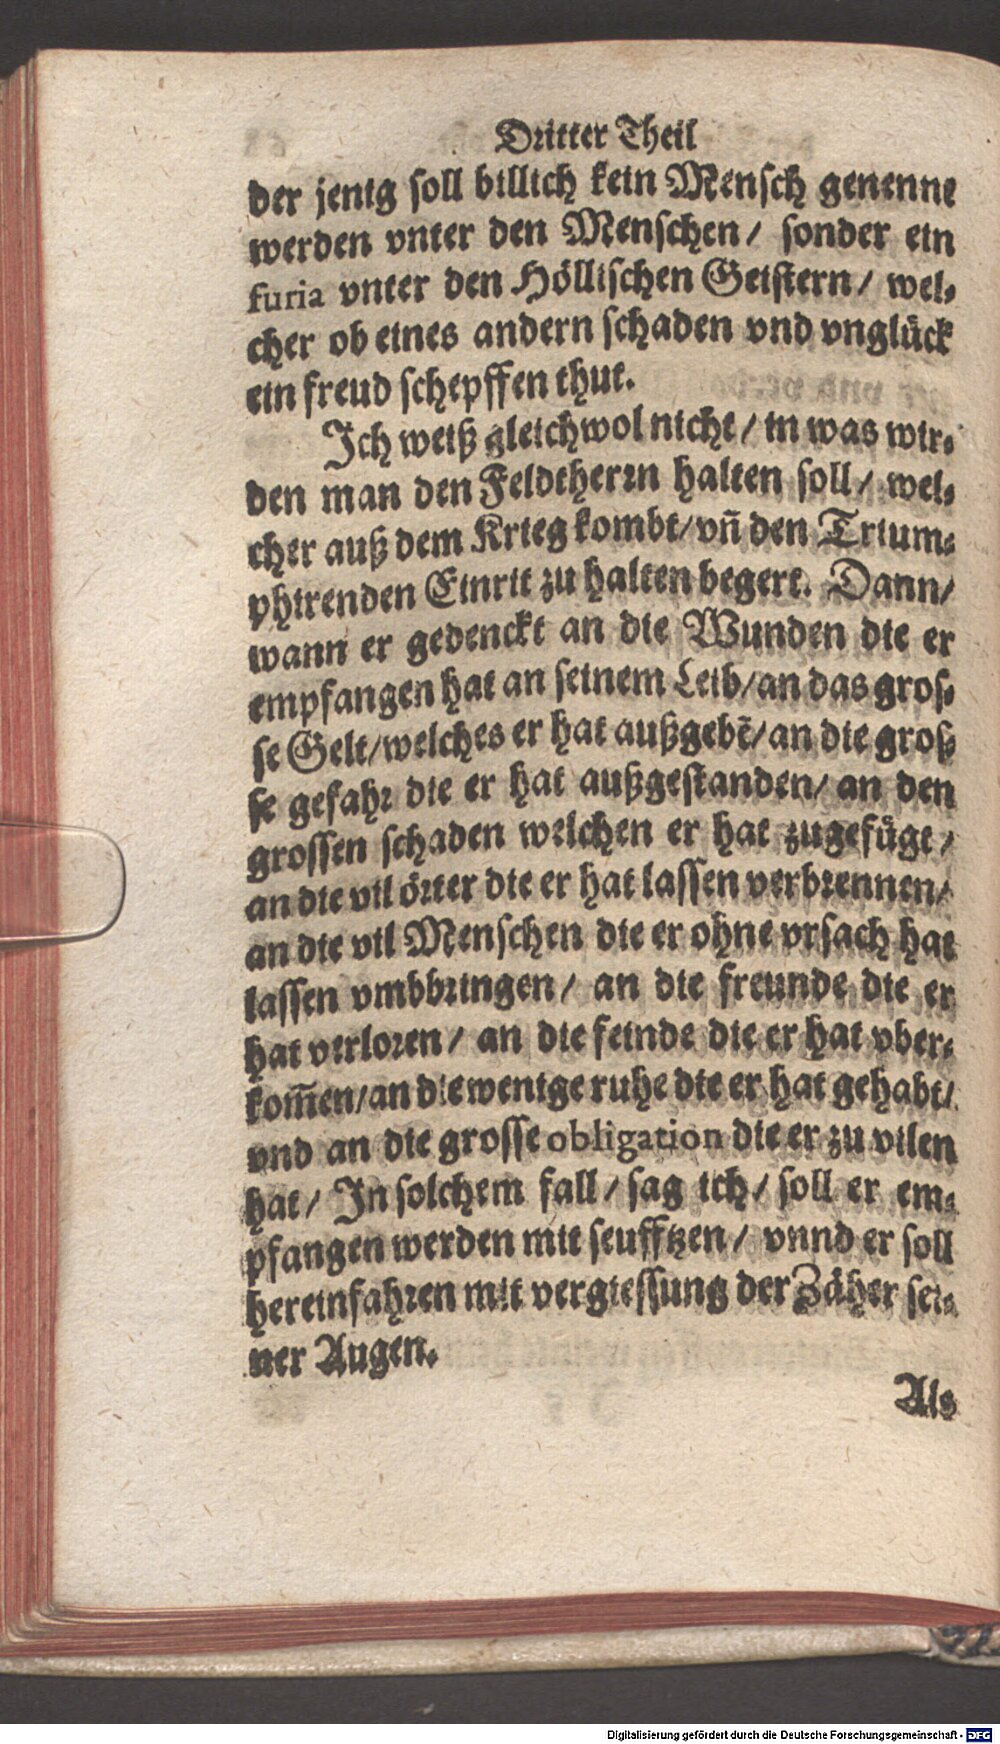 Dritter Theil
der jenig soll billich kein Mensch genenne
werden vnter den Menschen / sonder ein
furia vnter den Höllischen Geistern / wel-
cher ob eines andern schaden vnd vnglück
ein freud schepffen thut.
Ich weiß gleichwol nicht / in was wir-
den man den Feldtherrn halten soll / wel-
cher auß dem Krieg kombt / vn̄ den Trium-
phirenden Einrit zu halten begert. Dann /
wann er gedenckt an die Wunden die er
empfangen hat an seinem Leib / an das gros-
se Gelt / welches er hat außgebē / an die gros-
se gefahr die er hat außgestanden / an den
grossen schaden welchen er hat zugefügt /
an die vil örter die er hat lassen verbrennen /
an die vil Menschen die er ohne vrsach hat
lassen vmbbringen / an die freunde die er
hat verloren / an die feinde die er hat vber-
kom̄en / an die wenige ruhe die er hat gehabt /
vnd an die grosse obligation die er zu vilen
hat / In solchem fall / sag ich / soll er em-
pfangen werden mit seufftzen / vnnd er soll
hereinfahren mit vergiessung der Zäher sei-
ner Augen.
Als
Digitalisierung gefördert durch die Deutsche Forschungsgemeinschaft - DFG